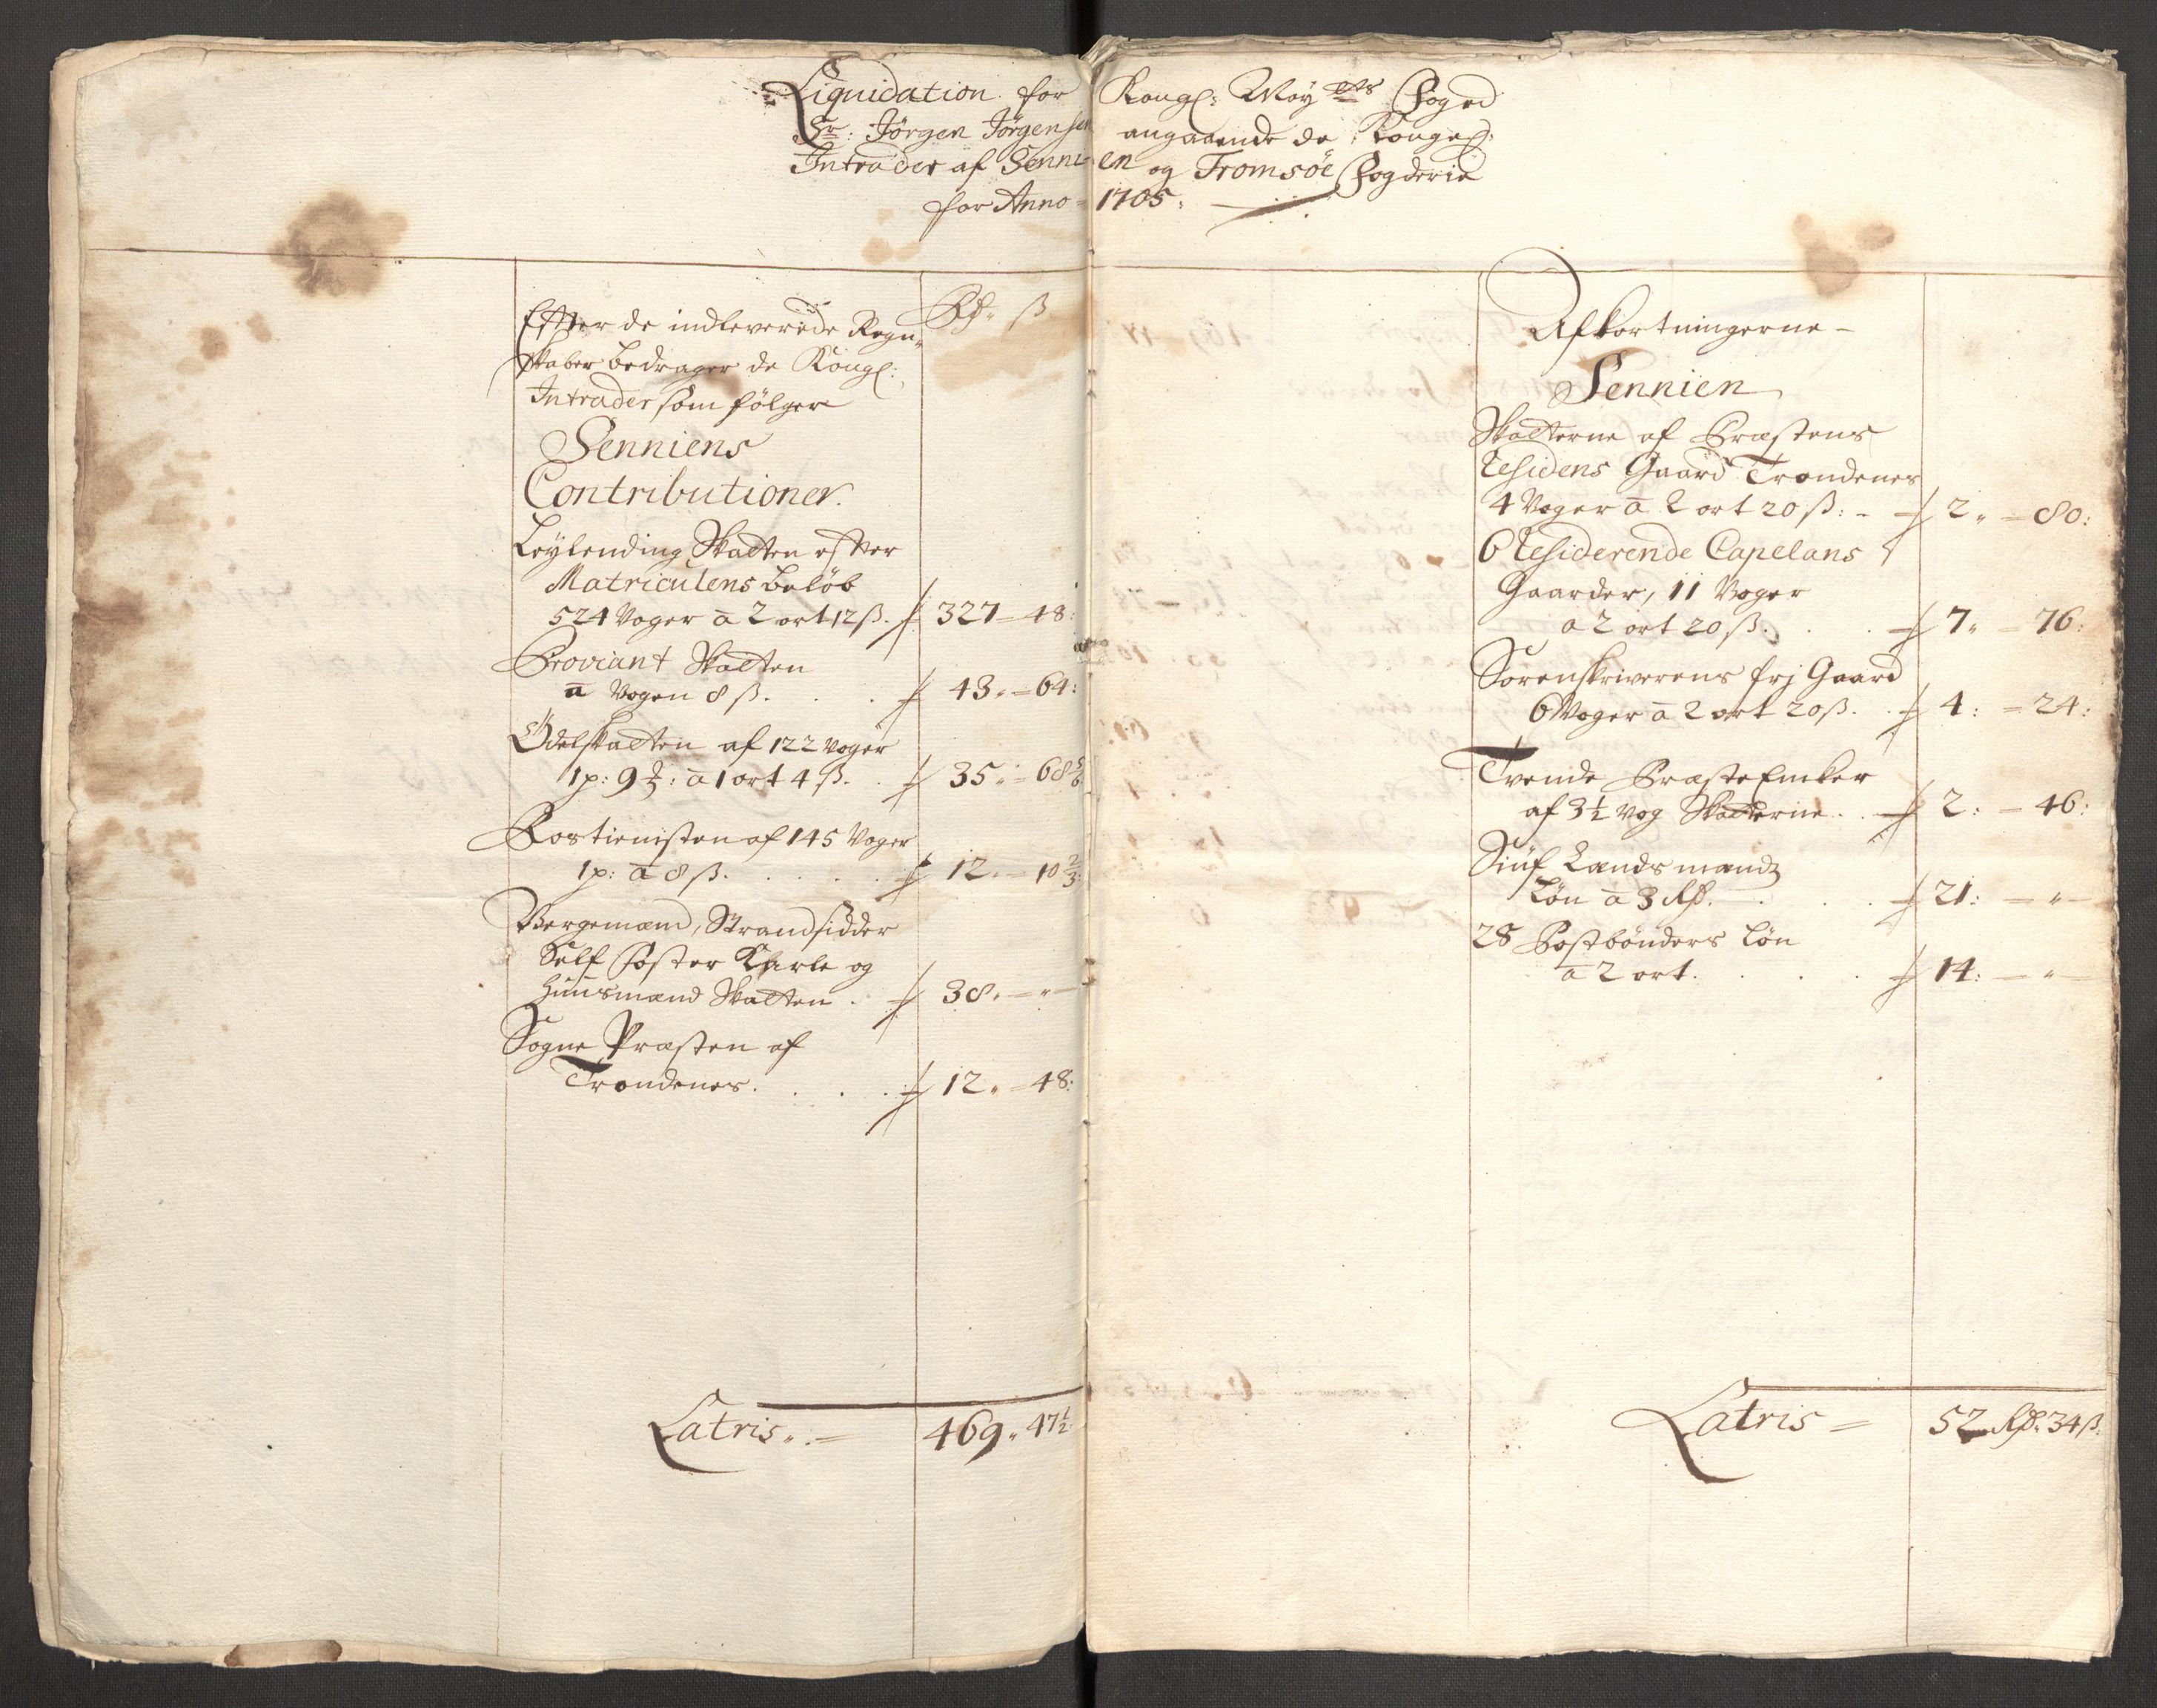 Liquidation for Kongl: May:ts Foged
Sr: Jörgen Jörgensen angaaende de Kongel:
Intrader af Sennien og Tromsöe Fogderie
for Anno = 1705.
Efter de indleverede Regn-
skaber bedrager de Kongl:
Intrader som fölger
Rd. ß
Senniens
Contributioner.
Leylending Skatten efter
Matriculens beløb
524 Voger a 2 ort 12 ß. 327 - 48:
Proviant Skatten
a Vogen 8 ß. 43. - 64:
Odelskatten af 122 voger
1 p: 9 : a 1 ort 4 ß. 35. - 68 5/6
Rostienisten af 145 Voger
1 p: a 8 ß. 12. - 10 2/3
Borgemænd, Strandsidder
Self Foster Karle og
Huusmænd Skatten. 38. - " -
Sogne Præsten af
Trondenes. 12. - 48:
Latris. = 469. 47 1/2
Afkortningerne -
Sennien
Skatterne af Præstens
Residens Gaard Trondenes
4 Voger a 2 ort 20 ß: - 2. - 80:
6 Residerende Capelans
Gaarder, 11 Voger
a 2 ort 20 ß. 7. - 76:
Sorenskriverens frj Gaard
6 Voger a 2 ort 20 ß. 4: - 24:
Tvende Præste Encker
af 3 1/2 vog Skatterne. 2: - 46:
Siuf Landsmænds
Løn a 3 Rd. 21: - " -
28 Postbönders Løn
a 2 ort. 14: - " -
Latris = 52 Rd. 34 ß.